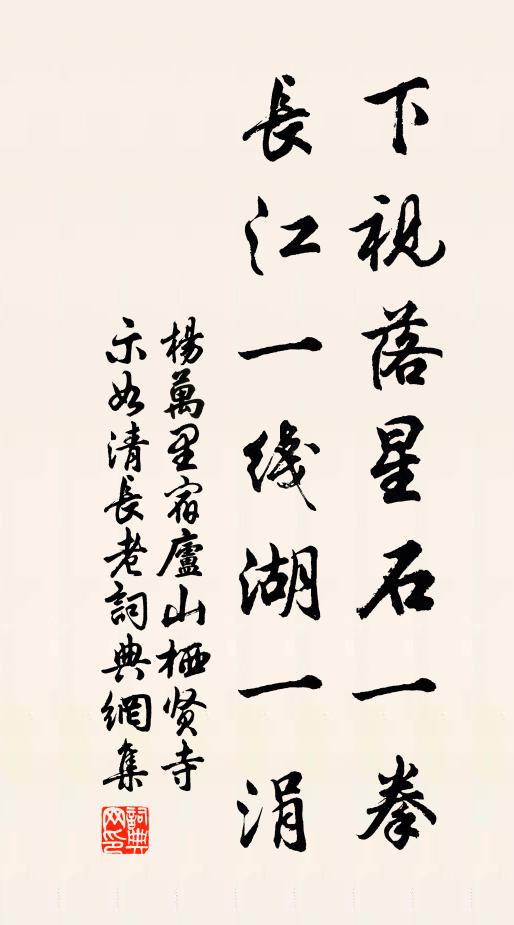 下視落星石一拳
長江一綫湖一涓
楊萬里宿廬山栖贤寺
示如清長老詞典網集
詞典網印